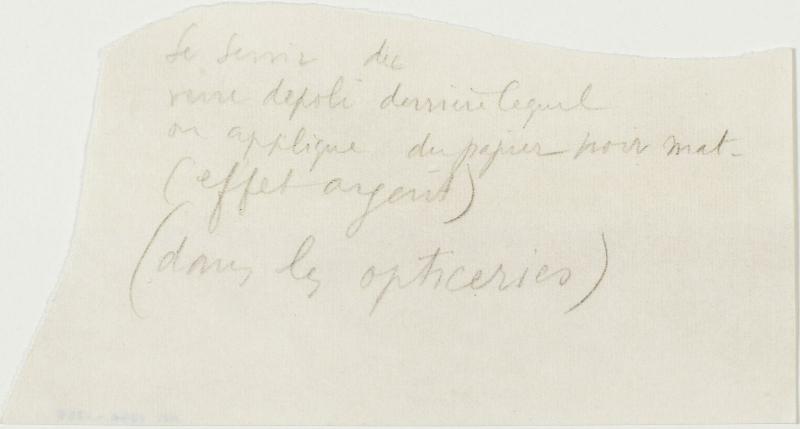 Se servir du
verre dépoli derrière lequel
on applique du papier noir mat-
(effet argent)
(dans les opticeries)